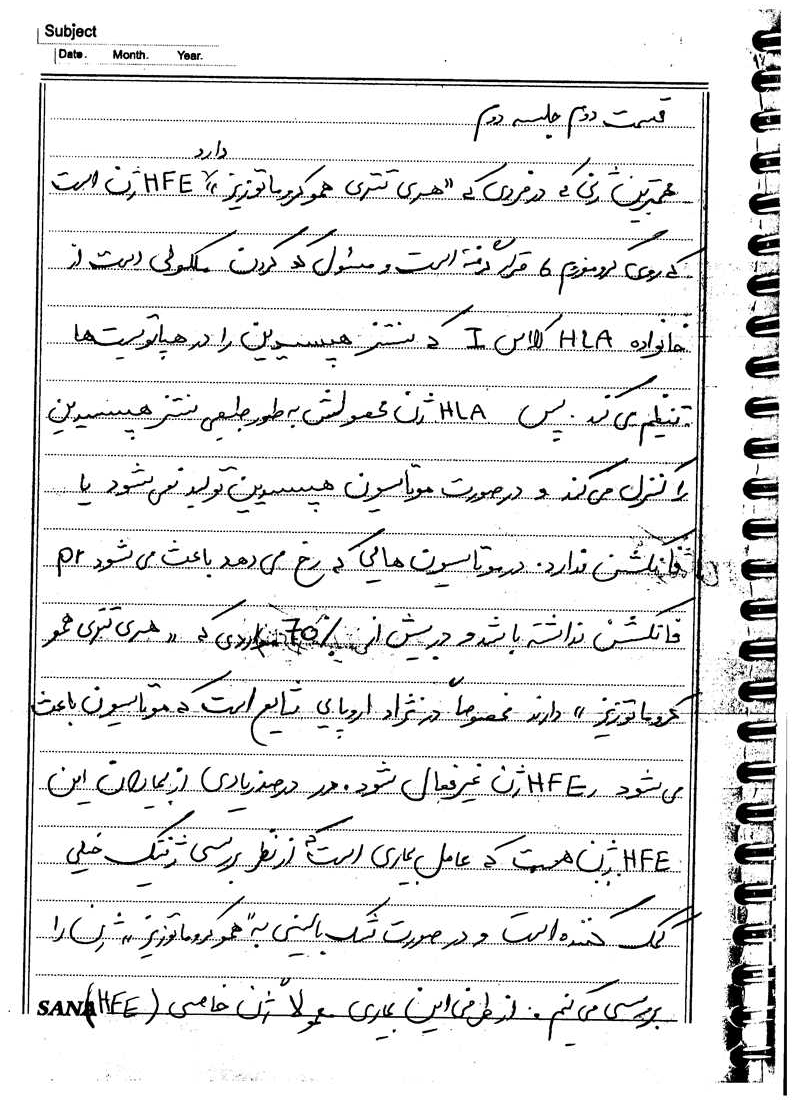 Subject
Date. Month. Year.
قسمت دوم جلسه دوم
مهمترین ژنی که در فردی که "هردی تری هموکروماتوزیز" دارد HFE ژن است
که روی کروموزوم 6 قرار گرفته است و مسئول کد کردن ملکولی است از
خانواده HLA کلاس I که سنتز هپسیدین را در هپاتوسیت‌ها
تنظیم می‌کند. پس HLA ژن محصولش به طور طبیعی سنتز هپسیدین
را کنترل می‌کند و در صورت موتاسیون هپسیدین تولید نمی‌شود یا
فانکشن ندارد. در موتاسیون هایی که رخ می‌دهد باعث می‌شود pr
فانکشن نداشته باشد و در بیش از 70% مواردی که "هردی تری همو
کروماتوزیز" دارند مخصوصاً در نژاد اروپایی شایع است که موتاسیون باعث
می‌شود HFE ژن غیرفعال شود. در درصد زیادی از بیماران این
HFE ژن هست که عامل بیماری است از نظر بررسی ژنتیک خیلی
کمک کننده است و در صورت شک بالینی به "هموکروماتوزیز" ژن را
بررسی می‌کنیم. از طرفی این بیماری معمولاً ژن خاصی (HFE)
SANA